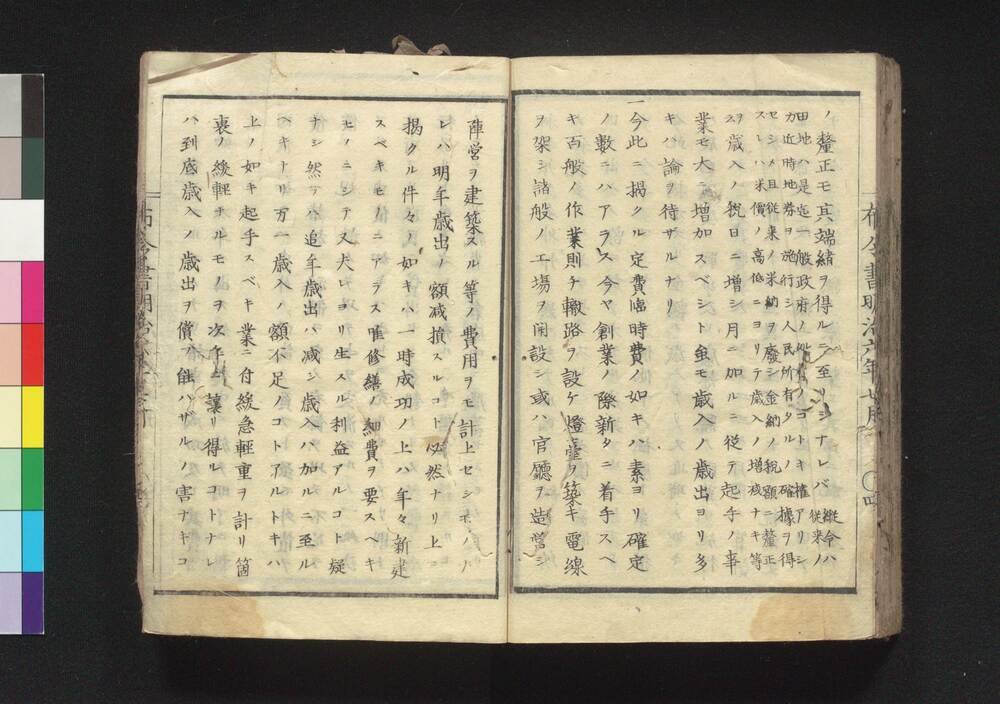 ノ釐正モ其端緒ヲ得ルニ至リシナレバ縦令ハ従来ノ
田地ハ是迄一般政府ノ
カ近時地券ヲ施行シ人民所有タルノ確據ヲ得
セシメ且従来ノ米納ヲ廢シ金納ノ税額ニ釐正
スレハ米價ノ高低ニヨリテ歳入ノ増减ナキ等
ヲ歳入ノ税日ニ増シ月ニ加ルニ従テ起手ノ事
業モ大ニ増加スベシト虽モ歳入ノ歳出ヨリ多
キハ論ヲ待サルナリ
一今此ニ掲クル定費臨時費ノ如キハ素ヨリ確定
ノ數ニハアラス今ヤ創業ノ際新タニ着手スベ
キ百般ノ作業則チ轍路ヲ設ケ燈臺ヲ築キ電線
ヲ架シ諸般ノ工場ヲ開設シ或ハ官廳ヲ造営シ
布令書明治六年七月
陣営ヲ建築スル等ノ費用ヲモ計上セシモノナ
レハ明年歳出ノ額减損スルコト必然ナリ上ニ
掲クル件々ノ如キハ一時成功ノ上ハ年々新建
スベキモノニアラス唯修繕ノ細費ヲ要スヘキ
モノニシテ又夫レヨリ生スル利益アルコト疑
ナシ然ラハ追年歳出ハ减シ歳入ハ加ルニ至ル
ヘキナリ万一歳入ノ額不足ノコトアルトキハ
上ノ如キ起手スベキ業ニ付緩急軽重ヲ計リ箇
裏ノ緩軽ナルモノヲ次年ニ譲リ得ルコトナレ
ハ到底歳入ノ歳出ヲ償フ能ハザルノ害ナキコ
布令書明治